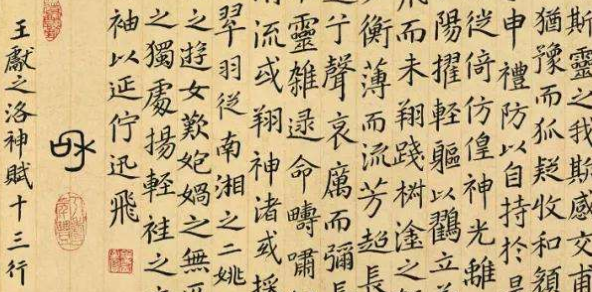 斯靈之我斯感交甫
猶豫而狐疑收和顏
申禮防以自持於是
從倚仿偟神光離
陽擢輕軀以鸖立
飛而未翔踐椒塗之
衡薄而流芳超長
之于聲哀厲而彌長
靈雜遝命疇嘯
流或翔神渚或採
翠羽從南湘之二姚
之遊女歎匏媧之無
之獨處揚輕袿之
袖以延佇迅飛
王獻之洛神賦十三行